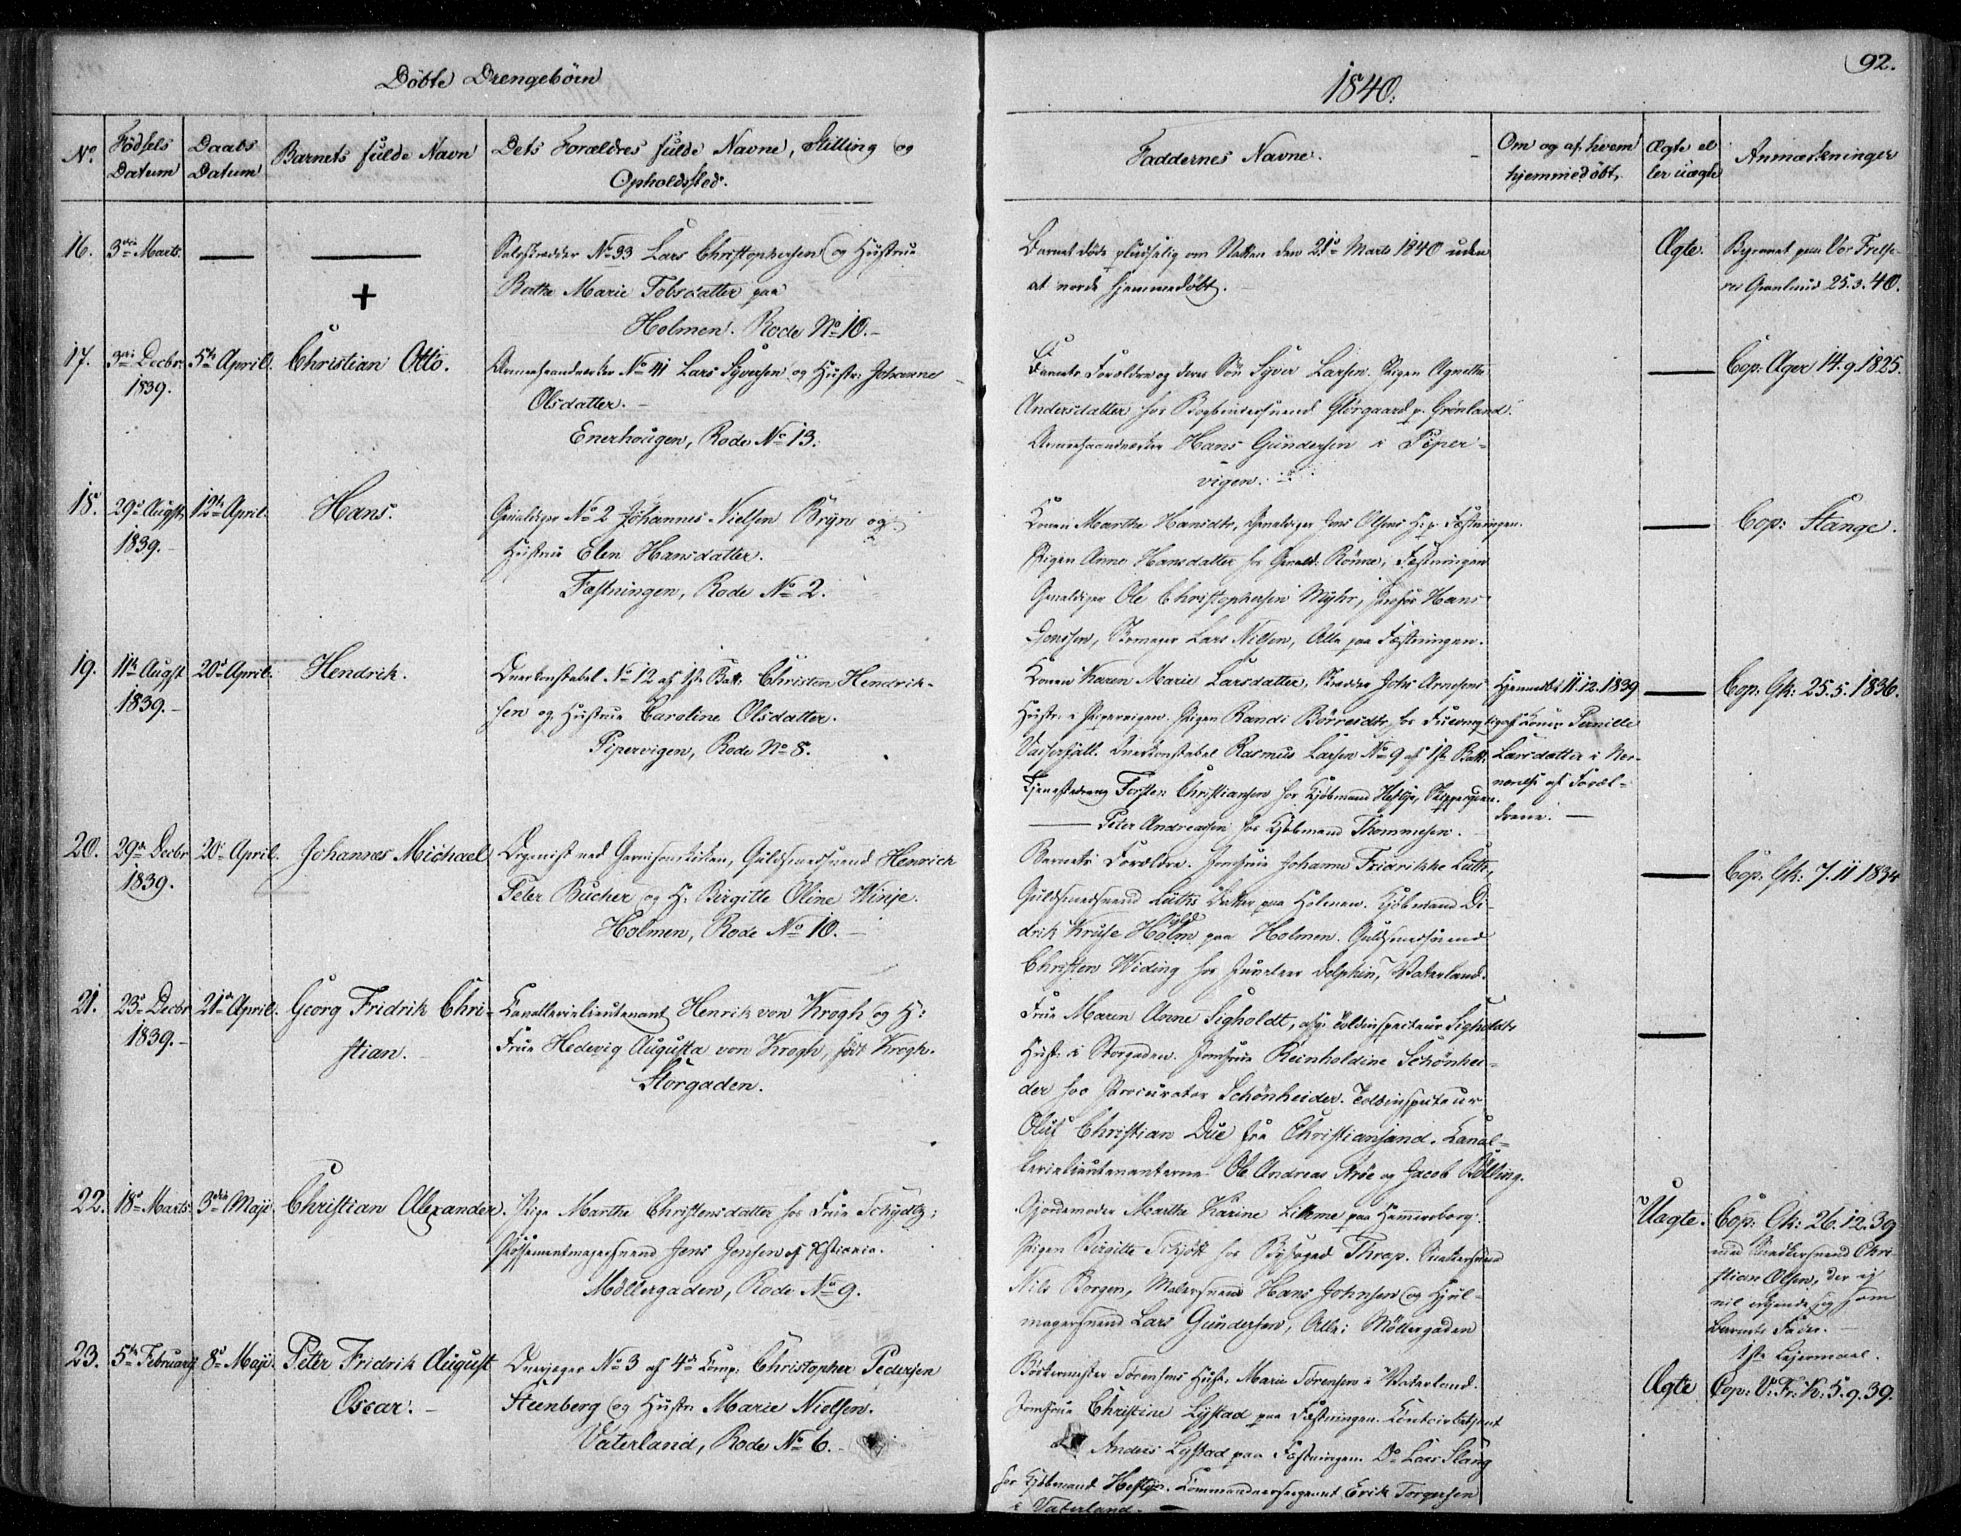 Döbte Drengebörn
1840.
92.
No. Födsels Datum Daabs Datum Barnets fulde Navn Dets Forældres fulde Navne, Stilling og Opholdssted.
Faddernes Navne. Om og af hvem hjemmedöbt. Ægte el ler uægte Anmærkninger
16. 3die Marts. — —
No 33 Lars Christophersen og Hustrue
Berthe Marie Tobsdatter paa
Holmen. Rode No 10.
+
Barnet döde pludselig om Natten den 21de Marts 1840 uden
at vorde hjemmedöbt.
Ægte.
Vor Frelse-
25.3.40.
17. 3die Decbr 1839. 5te April. Christian Otto.
No 41 Lars Syversen og Hustr: Johanne
Olsdatter.
Enerhougen, Rode No 13.
Barnets Forældre og deres Sön Syver Larsen. Pigen Agnethe
Andersdatter hos Bogbindersvend p. Grönland.
Hans Gundersen i Piper-
vigen.
—
Cop: Ager 14.9.1825.
18. 29de Augst 1839. 12te April. Hans.
No 2 Johannes Nielsen Bryn og
Hustrue Elen Hansdatter.
Fæstningen, Rode No 2.
Konen Marthe Hansdtr, Jens Olsens H: p. Fæstningen.
Pigen Anne Hansdatter hos Rönne, Fæstningen
Ole Christophersen Myhr, Hans
Lars Nilsen, Alle paa Fæstningen.
—
Cop: Stange.
19. 11te Augst 1839. 20de April. Hendrik.
Overkonstabel No 12 af 1ste Batt: Christen Hendrik-
sen og Hustrue Caroline Olsdatter.
Pipervigen, Rode No 8.
Konen Karen Marie Larsdatter, Johs Arnesens
Hustr: i Pipervigen. Pigen Randi Börresdtr, hos
Overkonstabel Rasmus Larsen No 9 af 1ste Batt:
Tjenestedreng Torsten Christiansen hos Kjöbmand Heftye,
— Peter Andreassen hos Kjöbmand Thommesen.
Hjemmedöbt 11.12.1839
af Konen Pernille
Larsdatter i Nær-
værelse af Foræl-
drene.
—
Cop: Gk: 25.5.1836.
20. 29de Decbr 1839. 20de April. Johannes Michael
Organist ved Garnisonskirken, Guldsmedsvend Henrich
Peter Bucher og H. Birgitte Oline Winje.
Holmen, Rode No 10.
Barnets Forældre. Jomfrue Johanne Fridrikke Lüth,
Guldsmedsvend Lüths Datter paa Holmen. Kjöbmand Di-
drik Kruse Holm paa Holmen. Guldsmedsvend
Christen Widing hos Dolphin, Vaterland.
—
Cop: Gk: 7.11 1834
21. 23de Decbr 1839. 21de April. Georg Fridrik Chri-
stian.
Kavallerielieutenant Henrik von Krogh og H:
Frue Hedevig Augusta von Krogh, födt Krogh.
Storgaden.
Frue Maren Anne Sigholdt, Toldinspecteur Sigholdts
Hust: i Storgaden. Jomfrue Reinholdine Schönhei-
der hos Procurator Schönheider. Toldinspecteur
Oluf Christian Due fra Christiansand. Kaval-
lerielieutenanterne Ole Andreas Kröe og Jacob Rölling.
—
22. 18de Marts. 3die Maji. Christian Alexander.
Pige Marthe Christensdatter hos Frue Schydtz;
Possementmagersvend Jens Jensen af Xstiania.
Möllergaden, Rode No 9.
Gjordemoder Marthe Karine Likkme paa Hammersborg.
Pigen Birgitte Schjött hos Byfoged Thrap. Snedkersvend
Nils Borgen, Malersvend Hans Johnsen og Hjul-
magersvend Lars Gundersen, Alle i Möllergaden
Uægte.
Cop: Gk: 26.12.39
med Snedkersvend Chri-
stian Olsen, der ei
vil erkjende sig som
Barnets Fader.
1ste Leiermaal.
23. 5te Februarij 8de Maji. Peter Fridrik August
Oscar.
Overjæger No 3 af 4de Komp: Christopher Pedersen
Steenberg og Hustr: Marie Nielsen.
Vaterland, Rode No 6.
Bödkermester Sörensens Hust: Marie Sörensen i Vaterland.
Jomfrue Christine Lystad paa Fæstningen.
Anders Lystad paa Fæstningen. Do Lars Slang
hos Kjöbmand Heftye. Kommandeersergeant Erik Torgersen
i Vaterland.
Ægte
Cop: V: Fr: K: 5.9.39.